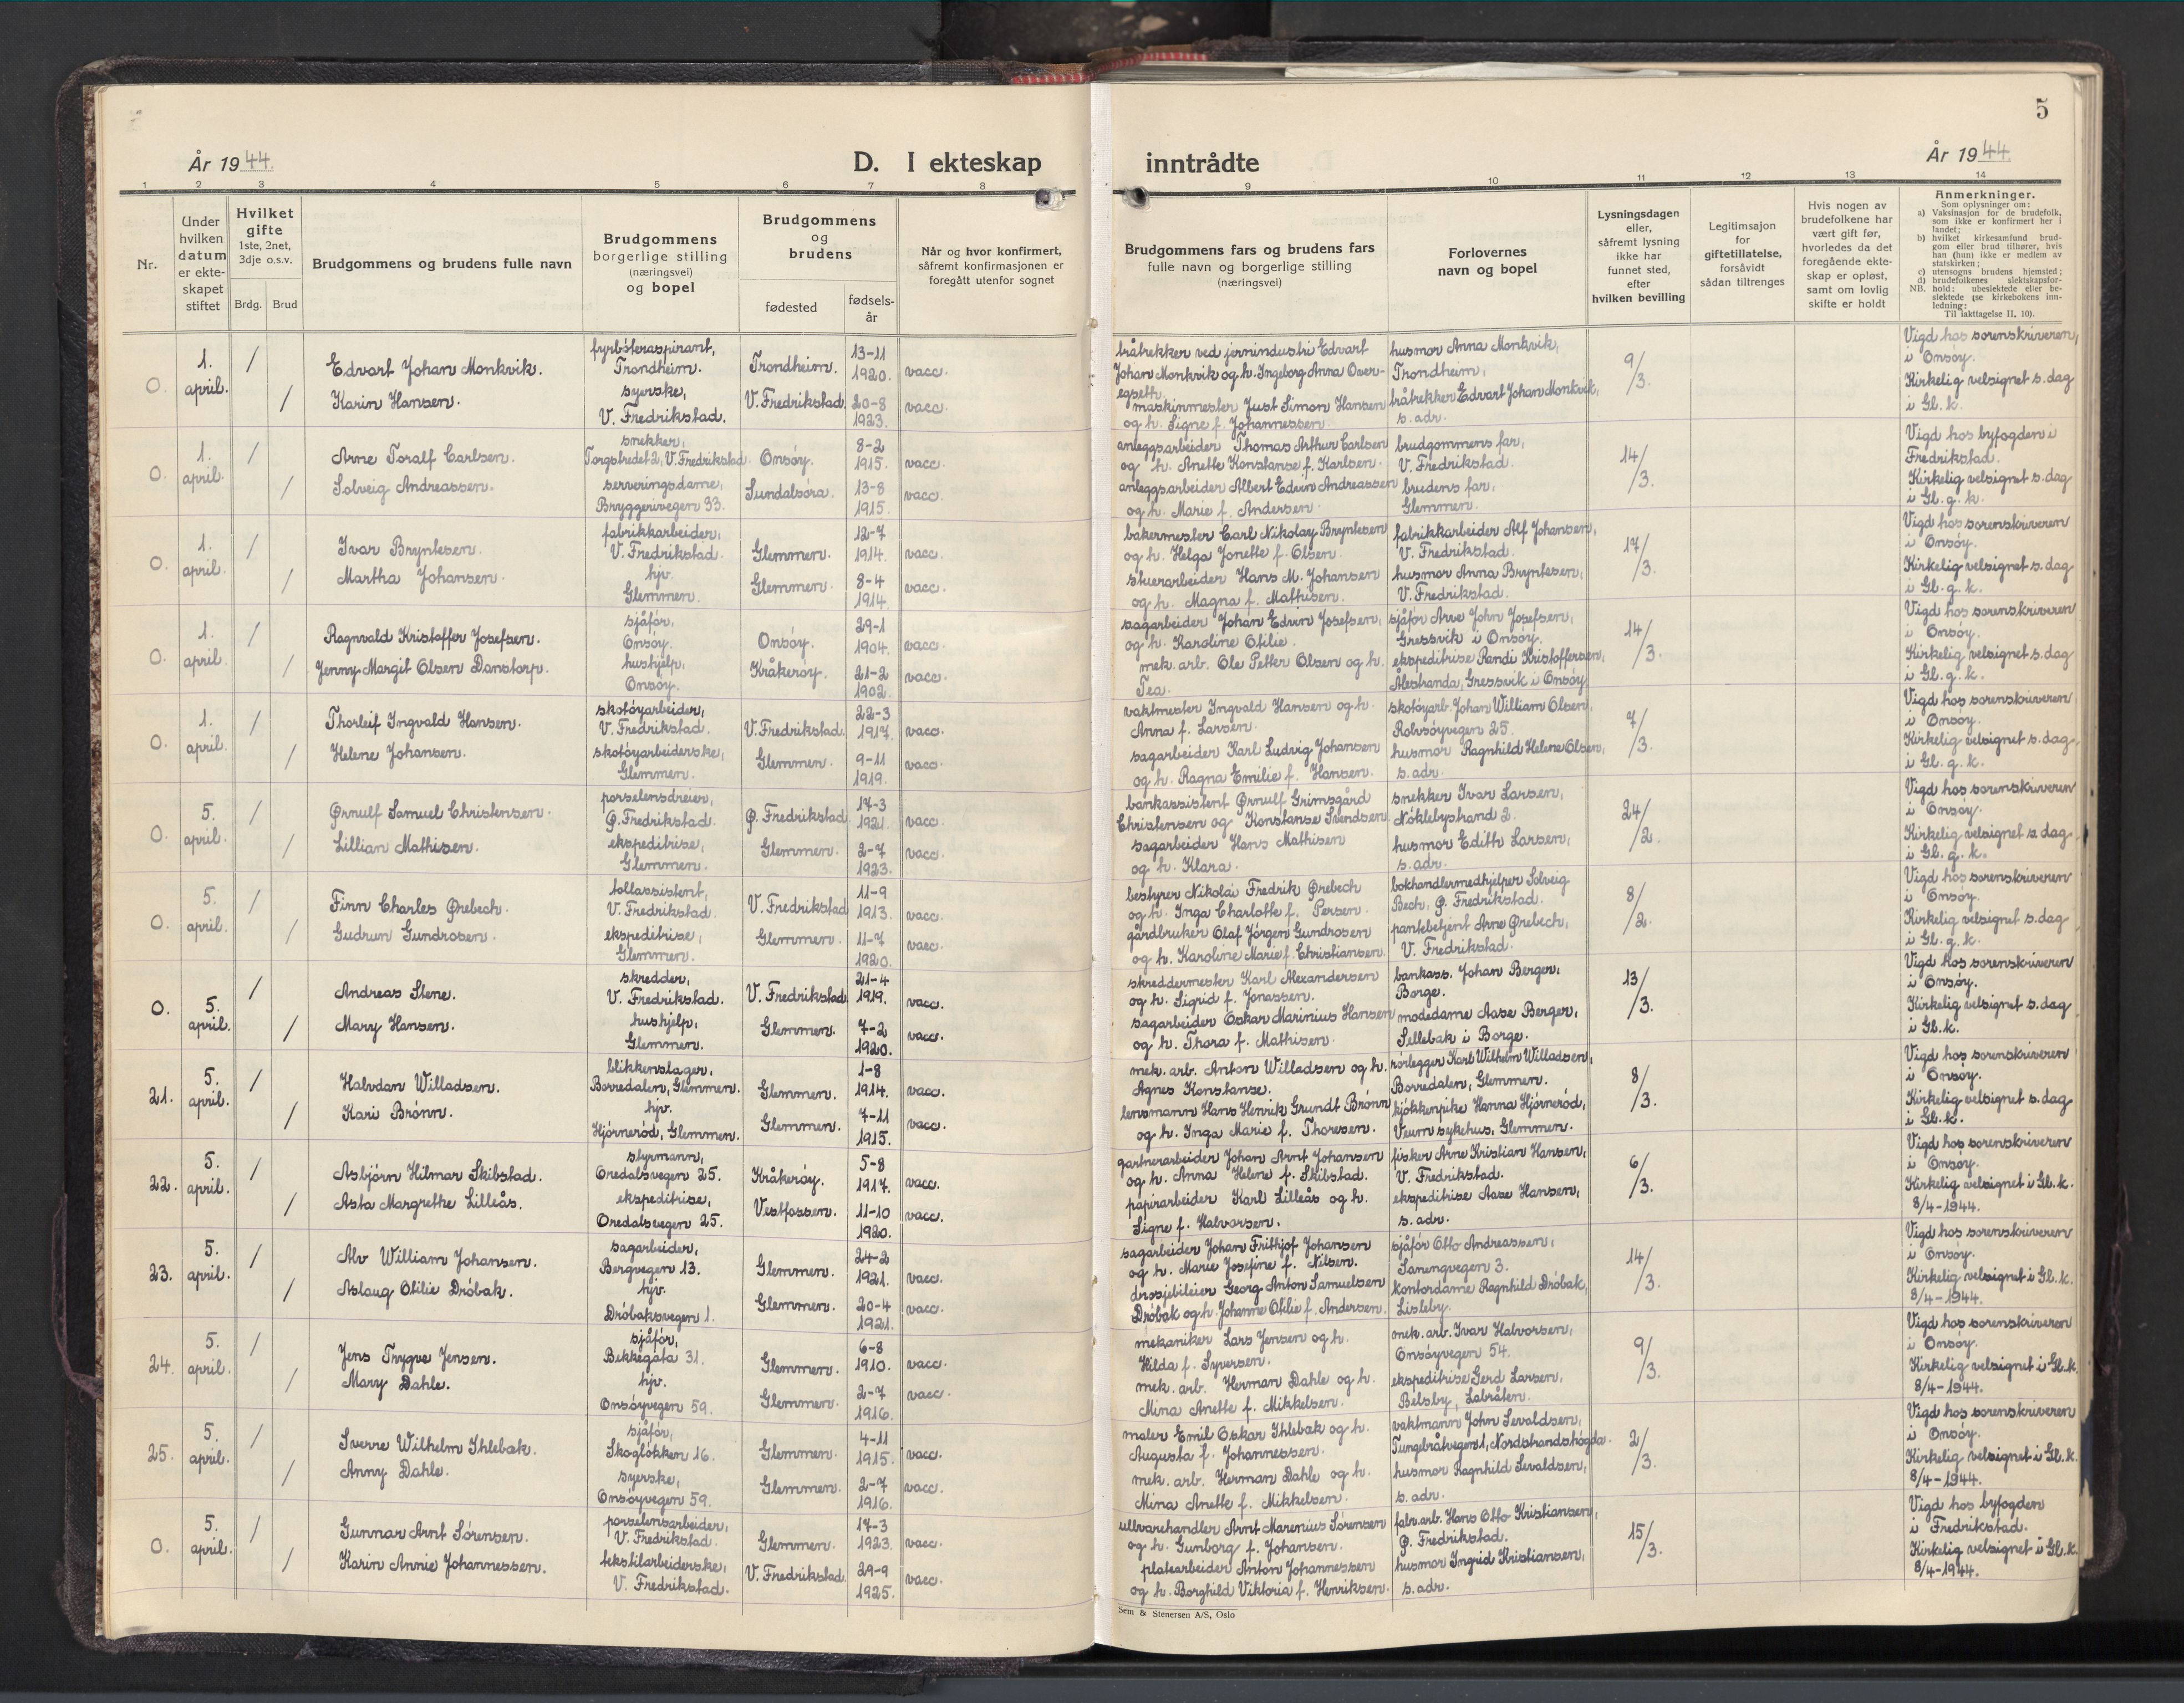 5
År 1944.
D. I ekteskap inntrådte
År 1944.
1 2 3 4 5 6 7 8 9 10 11 12 13 14
Nr.
Under hvilken datum er ekteskapet stiftet
Hvilket gifte
1ste, 2net, 3dje o.s.v.
Brdg. Brud
Brudgommens og brudens fulle navn
Brudgommens borgerlige stilling (næringsvei) og bopel
Brudgommens og brudens
fødested
fødselsår
Når og hvor konfirmert, såfremt konfirmasjonen er foregått utenfor sognet
Brudgommens fars og brudens fars fulle navn og borgerlige stilling (næringsvei)
Forlovernes navn og bopel
Lysningsdagen eller, såfremt lysning ikke har funnet sted, efter hvilken bevilling
Legitimsajon for giftetillatelse, forsåvidt sådan tiltrenges
Hvis nogen av brudefolkene har vært gift før, hvorledes da det foregående ekteskap er opløst, samt om lovlig skifte er holdt
Anmerkninger.
Som oplysninger om:
a) Vaksinasjon for de brudefolk, som ikke er konfirmert her i landet;
b) hvilket kirkesamfund brudgom eller brud tilhører, hvis han (hun) ikke er medlem av statskirken;
c) utensogns brudens hjemsted;
d) brudefolkenes slektskapsforhold: ubeslektede eller beslektede (se kirkebokens innledning:
NB. Til iakttagelse II, 10).
0. 1. april. / Edvart Johan Monkvik. fyrbøteraspirant, Trondheim. Trondheim. 13-11 1920. vacc.
/ Karin Hansen. syerske, V. Fredrikstad. V. Fredrikstad. 20-8 1923. vacc.
tråtrekker ved jernindustri Edvart Johan Monkvik og h. Ingeborg Anna Overegseth.
maskinmester Just Simon Hansen og h. Signe f. Johannessen.
husmor Anna Monkvik, Trondheim,
tråtrekker Edvart Johan Monkvik, s. adr.
9/3.
Vigd hos sorenskriveren, i Onsøy. Kirkelig velsignet s. dag i Gl. k.
0. 1. april. / Arne Toralf Carlsen. snekker, Torgstredet 2, V. Fredrikstad. Onsøy. 8-2 1915. vacc.
/ Solveig Andreassen. serveringsdame, Bryggerivegen 33. Sundalsøra. 13-8 1915. vacc.
anleggsarbeider Thomas Arthur Carlsen og h. Anette Konstanse f. Karlsen.
anleggsarbeider Albert Edvin Andreassen og h. Marie f. Andersen.
brudgommens far, V. Fredrikstad.
brudens far, Glemmen.
14/3.
Vigd hos byfogden i Fredrikstad. Kirkelig velsignet s. dag i Gl. g. k.
0. 1. april. / Ivar Bryntesen. fabrikkarbeider, V. Fredrikstad. Glemmen. 12-7 1914. vacc.
/ Martha Johansen. hjv. Glemmen. Glemmen. 8-4 1914. vacc.
bakermester Carl Nikolay Bryntesen og h. Helga Jonette f. Olsen.
stuerarbeider Hans M. Johansen og h. Magna f. Mathisen.
fabrikkarbeider Alf Johansen, V. Fredrikstad.
husmor Anna Bryntesen, V. Fredrikstad.
17/3.
Vigd hos sorenskriveren i Onsøy. Kirkelig velsignet s. dag i Gl. g. k.
0. 1. april. / Ragnvald Kristoffer Josefsen. sjåfør, Onsøy. Onsøy. 29-1 1904. vacc.
/ Jenny Margit Olsen Danstorp. hushjelp, Onsøy. Kråkerøy. 21-2 1902. vacc.
sagarbeider Johan Edvin Josefsen, og h. Karoline Otilie.
mek. arb. Ole Petter Olsen og h. Tea.
sjåfør Arve John Josefsen, Gressvik i Onsøy.
ekspeditrise Randi Kristoffersen, Ålestranda, Gressvik i Onsøy.
14/3.
Vigd hos sorenskriveren i Onsøy. Kirkelig velsignet s. dag i Gl. g. k.
0. 1. april. / Thorleif Ingvald Hansen. skotøyarbeider, V. Fredrikstad. V. Fredrikstad. 22-3 1917. vacc.
/ Helene Johansen. skotøyarbeiderske, Glemmen. Glemmen. 9-11 1919. vacc.
vaktmester Ingvald Hansen og h. Anna f. Larsen.
sagarbeider Karl Ludvig Johansen og h. Ragna Emilie f. Hansen.
skotøyarb. Johan William Olsen, Rolvsøyvegen 25.
husmor Ragnhild Helene Olsen, s. adr.
7/3.
Vigd hos sorenskriveren i Onsøy. Kirkelig velsignet s. dag i Gl. g. k.
0. 5. april. / Ørnulf Samuel Christensen. porselensdreier, Ø. Fredrikstad. Ø. Fredrikstad. 17-3 1921. vacc.
/ Lillian Mathisen. ekspeditrise, Glemmen. Glemmen. 2-7 1923. vacc.
bankassistent Ørnulf Grimsgård Christensen og Konstanse Svendsen
sagarbeider Hans Mathisen og h. Klara.
snekker Ivar Larsen, Nøklebystrand 2.
husmor Edith Larsen, s. adr.
24/2.
Vigd hos sorenskriveren i Onsøy. Kirkelig velsignet s. dag i Gl. g. k.
0. 5. april. / Finn Charles Ørebech. tollassistent, V. Fredrikstad. V. Fredrikstad 11-9 1913. vacc.
/ Gudrun Gundrosen. ekspeditrise, Glemmen. Glemmen. 11-7 1920. vacc.
bestyrer Nikolai Fredrik Ørebech og h. Inga Charlotte f. Persen.
gårdbruker Olaf Jörgen Gundrosen og h. Karoline Marie f. Christiansen.
bokhandlermedhjelper Solveig Bech, Ø. Fredrikstad.
pantebetjent Arne Ørebech, V. Fredrikstad.
8/2.
Vigd hos sorenskriveren i Onsøy. Kirkelig velsignet s. dag i Gl. g. k.
0. 5. april. / Andreas Stene. skredder, V. Fredrikstad. V. Fredrikstad. 21-4 1919. vacc.
/ Mary Hansen. hushjelp, Glemmen. Glemmen. 7-2 1920. vacc.
skreddermester Karl Alexandersen og h. Sigrid f. Jonassen.
sagarbeider Oskar Marinius Hansen og h. Thora f. Mathisen.
bankass. Johan Berger, Borge.
modedame Aase Berger, Sellebak i Borge.
13/3.
Vigd hos sorenskriveren i Onsøy. Kirkelig velsignet s. dag i Gl. k.
21. 5. april. / Halvdan Willadsen. blikkenslager, Borredalen, Glemmen. Glemmen. 1-8 1914. vacc.
/ Kari Brønn. hjv. Hjørnerød, Glemmen. Glemmen. 7-11 1915. vacc.
mek. arb. Anton Willadsen og h. Agnes Konstanse.
lensmann Hans Henrik Grundt Brønn og h. Inga Marie f. Thoresen.
rørlegger Karl Wilhelm Willadsen, Borredalen, Glemmen.
kjøkkenpike Hanna Hjørnerød, Veum sykehus, Glemmen.
8/3.
Vigd hos sorenskriveren i Onsøy. Kirkelig velsignet s. dag i Gl. k.
22. 5. april. / Asbjørn Hilmar Skibstad. styrmann, Oredalsvegen 25. Kråkerøy. 5-8 1917. vacc.
/ Asta Margrethe Lilleås. ekspeditrise, Oredalsvegen 25. Vestfossen. 11-10 1920. vacc.
gartnerarbeider Johan Arnt Johansen og h. Anna Helene f. Skibstad.
papirarbeider Karl Lilleås og h. Signe f. Halvorsen.
fisker Arne Kristian Hansen, V. Fredrikstad.
ekspeditrise Aase Hansen, s. adr.
6/3.
Vigd hos sorenskriveren i Onsøy. Kirkelig velsignet i Gl. k. 8/4-1944.
23. 5. april. / Alv William Johansen. sagarbeider, Bergvegen 13. Glemmen. 24-2 1921. vacc.
/ Aslaug Otilie Drøbak. hjv. Drøbaksvegen 1. Glemmen. 20-4 1921. vacc.
sagarbeider Johan Frithjof Johansen og h. Marie Josefine f. Nilsen.
drosjebileier Georg Anton Samuelsen Drøbak og h. Johanne Otilie f. Andersen.
sjåfør Otto Andreassen, Sanengvegen 3.
kontordame Ragnhild Drøbak, Lisleby.
14/3.
Vigd hos sorenskriveren i Onsøy. Kirkelig velsignet i Gl. k. 8/4-1944.
24. 5. april. / Jens Trygve Jensen. sjåfør, Bekkegata 31. Glemmen. 6-8 1910. vacc.
/ Mary Dahle. hjv. Onsøyvegen 59. Glemmen. 2-7 1916. vacc.
mekaniker Lars Jensen og h. Hilda f. Syversen.
mek. arb. Herman Dahle og h. Mina Anette f. Mikkelsen.
mek. arb. Ivar Halvorsen, Onsøyvegen 54.
ekspeditrise Gerd Larsen, Bélsby, Labråten.
9/3.
Vigd hos sorenskriveren i Onsøy. Kirkelig velsignet i Gl. k. 8/4-1944.
25. 5. april. / Sverre Wilhelm Ihlebak. sjåfør, Skogløkken 16. Glemmen. 4-11 1915. vacc.
/ Anny Dahle. syerske, Onsøyvegen 59. Glemmen. 2-7 1916. vacc.
maler Emil Oskar Ihlebak og h. Augusta f. Johannessen.
mek. arb. Herman Dahle og h. Mina Anette f. Mikkelsen.
vaktmann John Sevaldsen, Tungebråtvegen 1, Nordstrandshøgda.
husmor Ragnhild Sevaldsen, s. adr.
2/3.
Vigd hos sorenskriveren i Onsøy. Kirkelig velsignet i Gl. k. 8/4-1944.
0. 5. april. / Gunnar Arnt Sørensen. porselensarbeider, V. Fredrikstad. Glemmen. 17-3 1923. vacc.
/ Karin Annie Johannessen. tekstilarbeiderske, V. Fredrikstad. V. Fredrikstad. 29-9 1925. vacc.
ullvarehandler Arnt Marenius Sørensen og h. Gunborg f. Johansen.
platearbeider Anton Johannessen og h. Borghild Viktoria f. Henriksen.
fabr.arb. Hans Otto Kristiansen, Ø. Fredrikstad.
husmor Ingrid Kristiansen, s. adr.
15/3.
Vigd hos byfogden i Fredrikstad. Kirkelig velsignet i Gl. k. 8/4-1944.
Sem & Stenersen A/S, Oslo